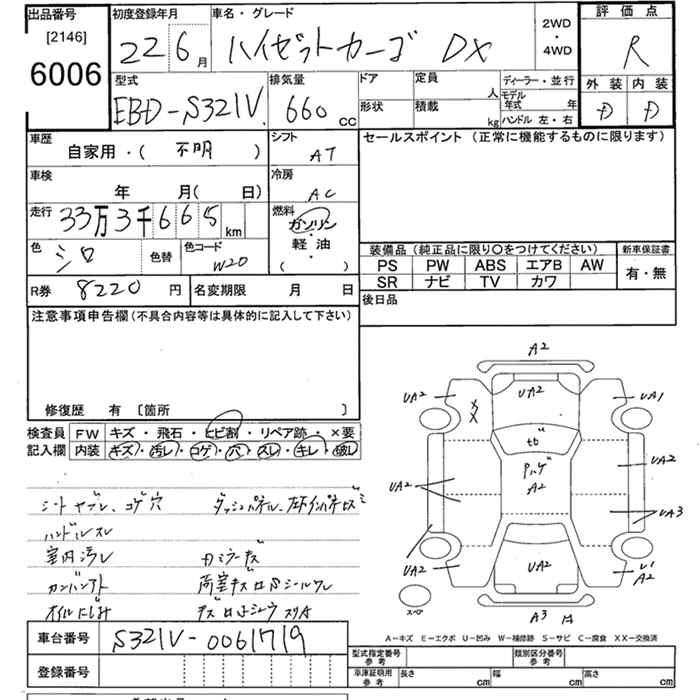 出品番号
[2146]
6006
初度登録年月
22 6月
車名・グレード
ハイゼットカーゴ DX
2WD
・
4WD
評価点
R
外装 内装
D D
型式
EBD-S321V
排気量
660 cc
ドア
形状
定員
人
積載
kg
ディーラー・並行
モデル
年式 年
ハンドル 左・右
車歴
自家用・( 不明 )
シフト
AT
セールスポイント (正常に機能するものに限ります)
車検
年 月( 日)
冷房
AC
走行
33万3千665 km
燃料
ガソリン
・
軽油
・
( )
色
シロ
色替
色コード
W20
装備品(純正品に限り○をつけてください)
PS PW ABS エアB AW
SR ナビ TV カワ
新車保証書
有・無
R券 8220 円
名変期限 月 日
後日品
注意事項申告欄(不具合内容等は具体的に記入して下さい)
修復歴 有 〔箇所 〕
検査員
記入欄
FW キズ・飛石・ヒビ割・リペア跡・×要
内装 キズ・汚レ・コゲ・穴・スレ・キレ・破レ
シートヤブレ、コゲ穴
ハンドルスレ
室内汚レ
オイルにじみ
車台番号 S321V-0061719
登録番号
A2
UA2
UA2
UA1
XX
Pハゲ
A2
UA2
UA2
UA2
UA3
UA2
UA2
A2
スペア
A3
A-キズ E-エクボ U-凹み W-補修跡 S-サビ C-腐食 XX-交換済
型式指定番号
参考
類別区分番号
参考
車庫証明用
参考
長さ cm
幅 cm
高さ cm